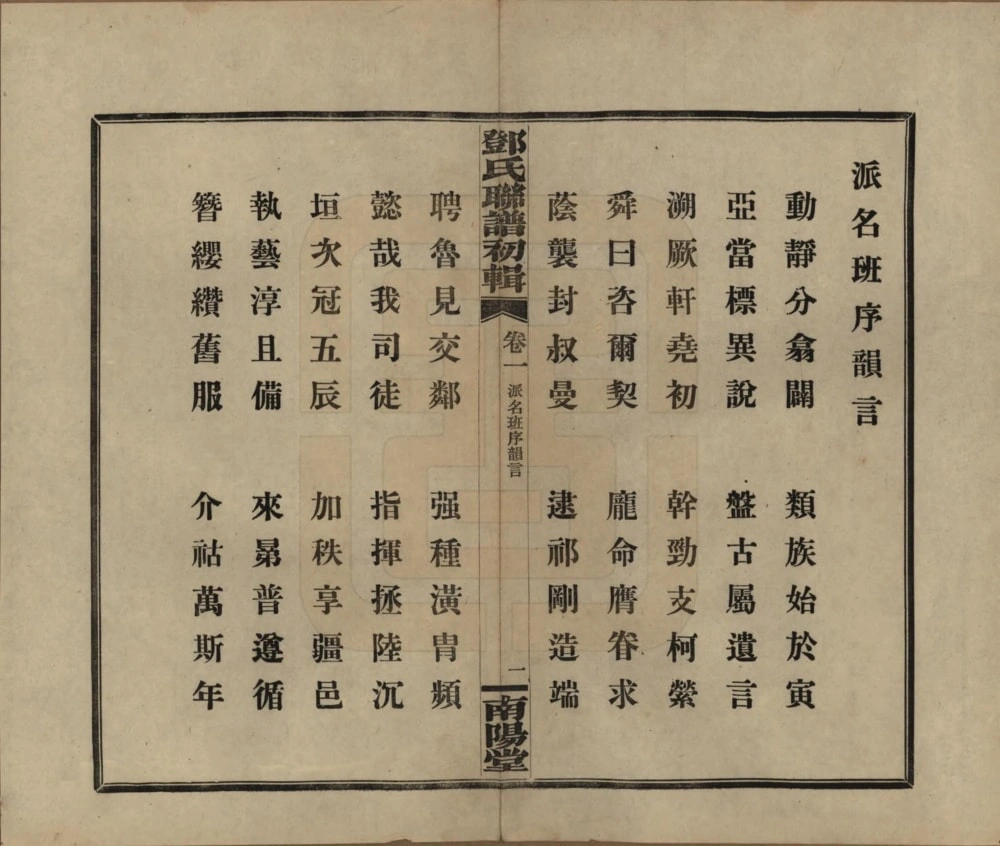 派名班序韻言
動靜分翕闢 類族始於寅
亞當標異說 盤古屬遺言
溯厥軒堯初 幹勁支柯縈
舜曰咨爾契 龐命膺眷求
蔭襲封叔曼 逮祁剛造端
鄧氏聯譜初輯 卷一 派名班序韻言 一 南陽堂
聘魯見交鄰 强種潢胄頻
懿哉我司徒 指揮拯陸沉
垣次冠五辰 加秩享疆邑
執藝淳且備 來曑普遵循
簪纓纘舊服 介祜萬斯年